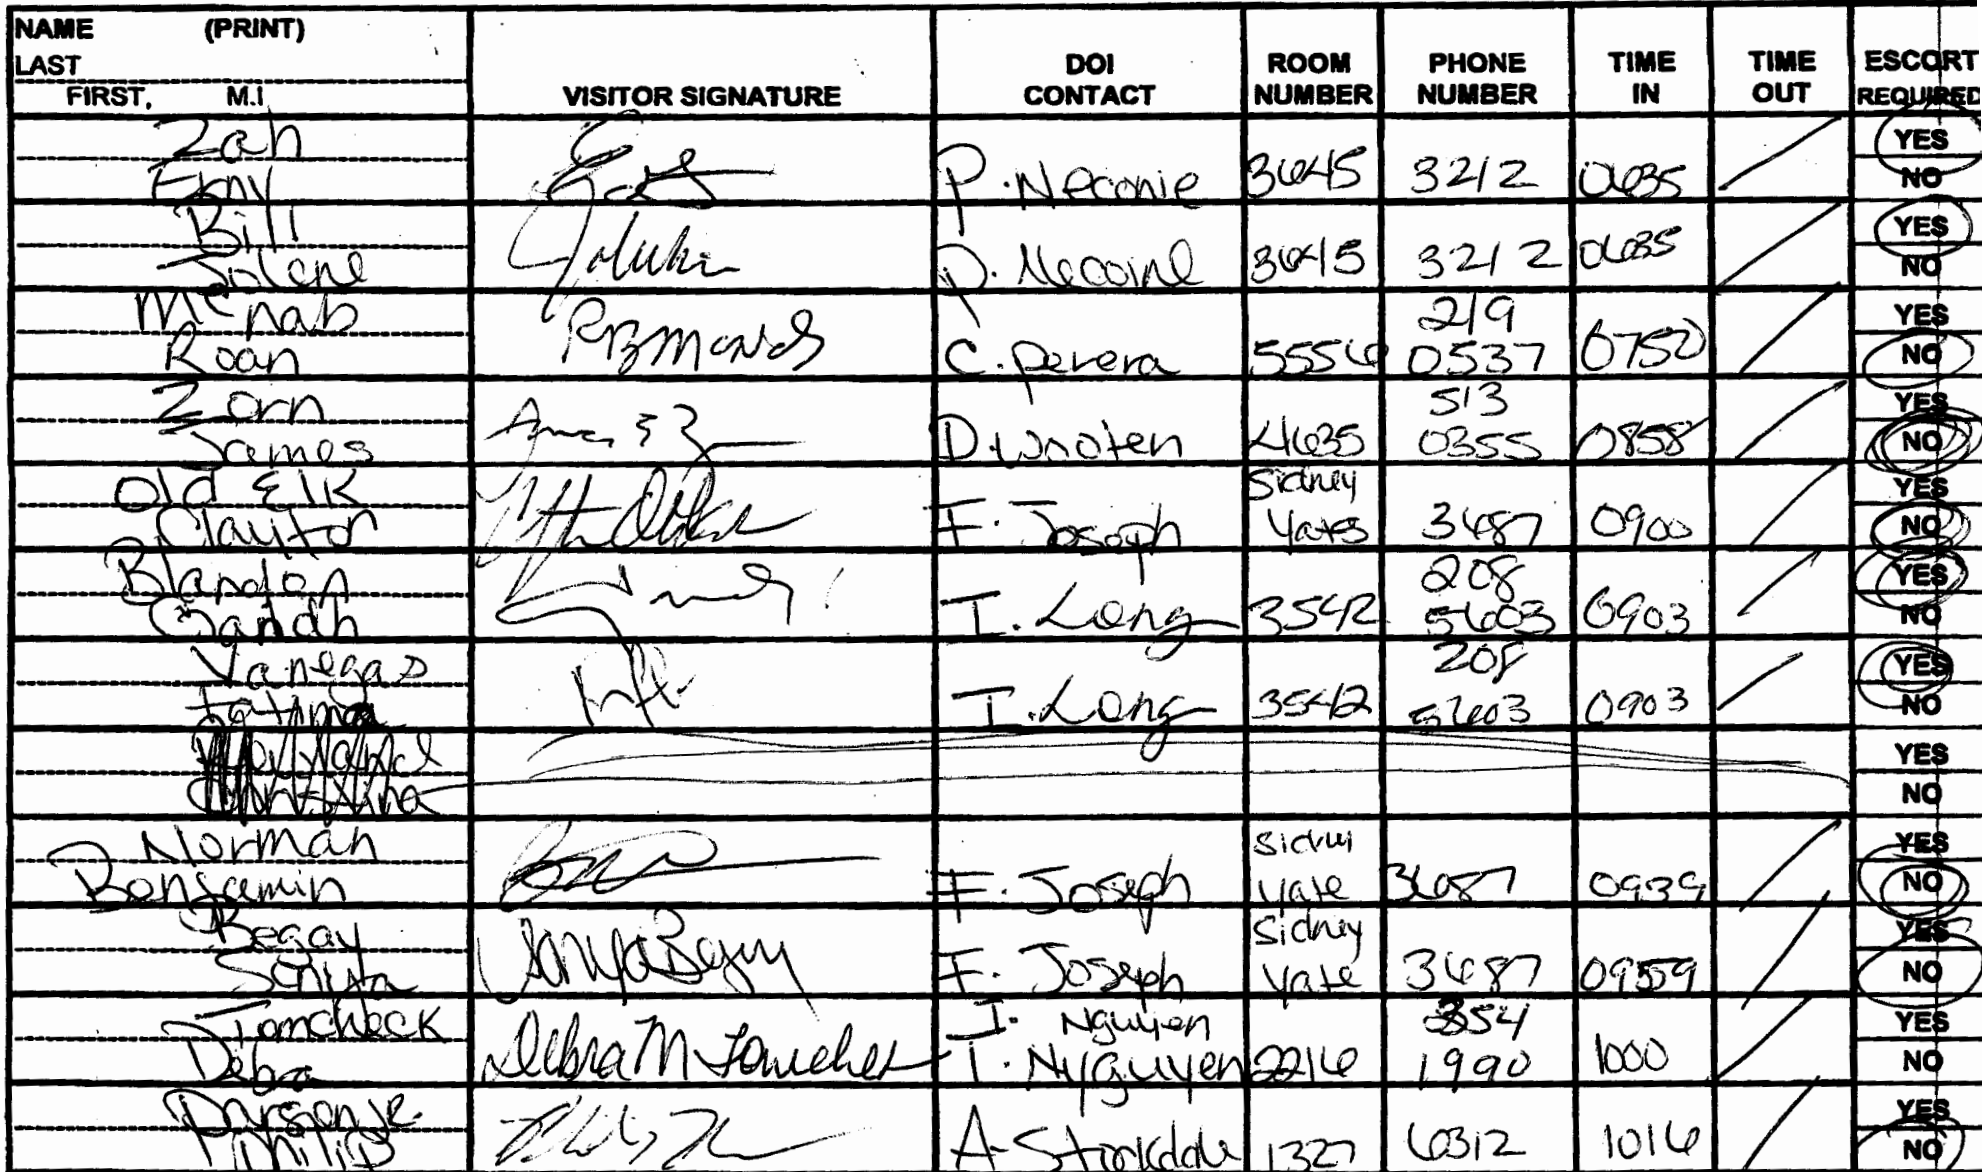 NAME (PRINT)
LAST
FIRST, M.I
VISITOR SIGNATURE
DOI CONTACT
ROOM NUMBER
PHONE NUMBER
TIME IN
TIME OUT
ESCORT REQUIRED
Zah
P. Neconie 3645 3212 0635
YES
NO
Bill
Jolene
3645 3212 0635
YES
NO
McNab
Roan
C. Perera 5556 219 0537 0750
YES
NO
Zorn
James
D. Wroten 4635 513 0355 0858
YES
NO
Old Elk
Clayton
F. Joseph Sidney Yates 3687 0900
YES
NO
Blandon
I. Long 3542 208 5603 0903
YES
NO
Vanegas
Fatima
I. Long 3542 208 5603 0903
YES
NO
YES
NO
Norman
Benjamin
F. Joseph Yate 3687 0939
YES
NO
Begay
Sonya Begay
F. Joseph Sidney Yate 3687 0959
YES
NO
Tomcheck
Debra
Debra M Tomcheck
I. Nguyen
T. Nyguyen 2216 354 1990 1000
YES
NO
Philip
A. Stockdale 1327 6312 1016
YES
NO